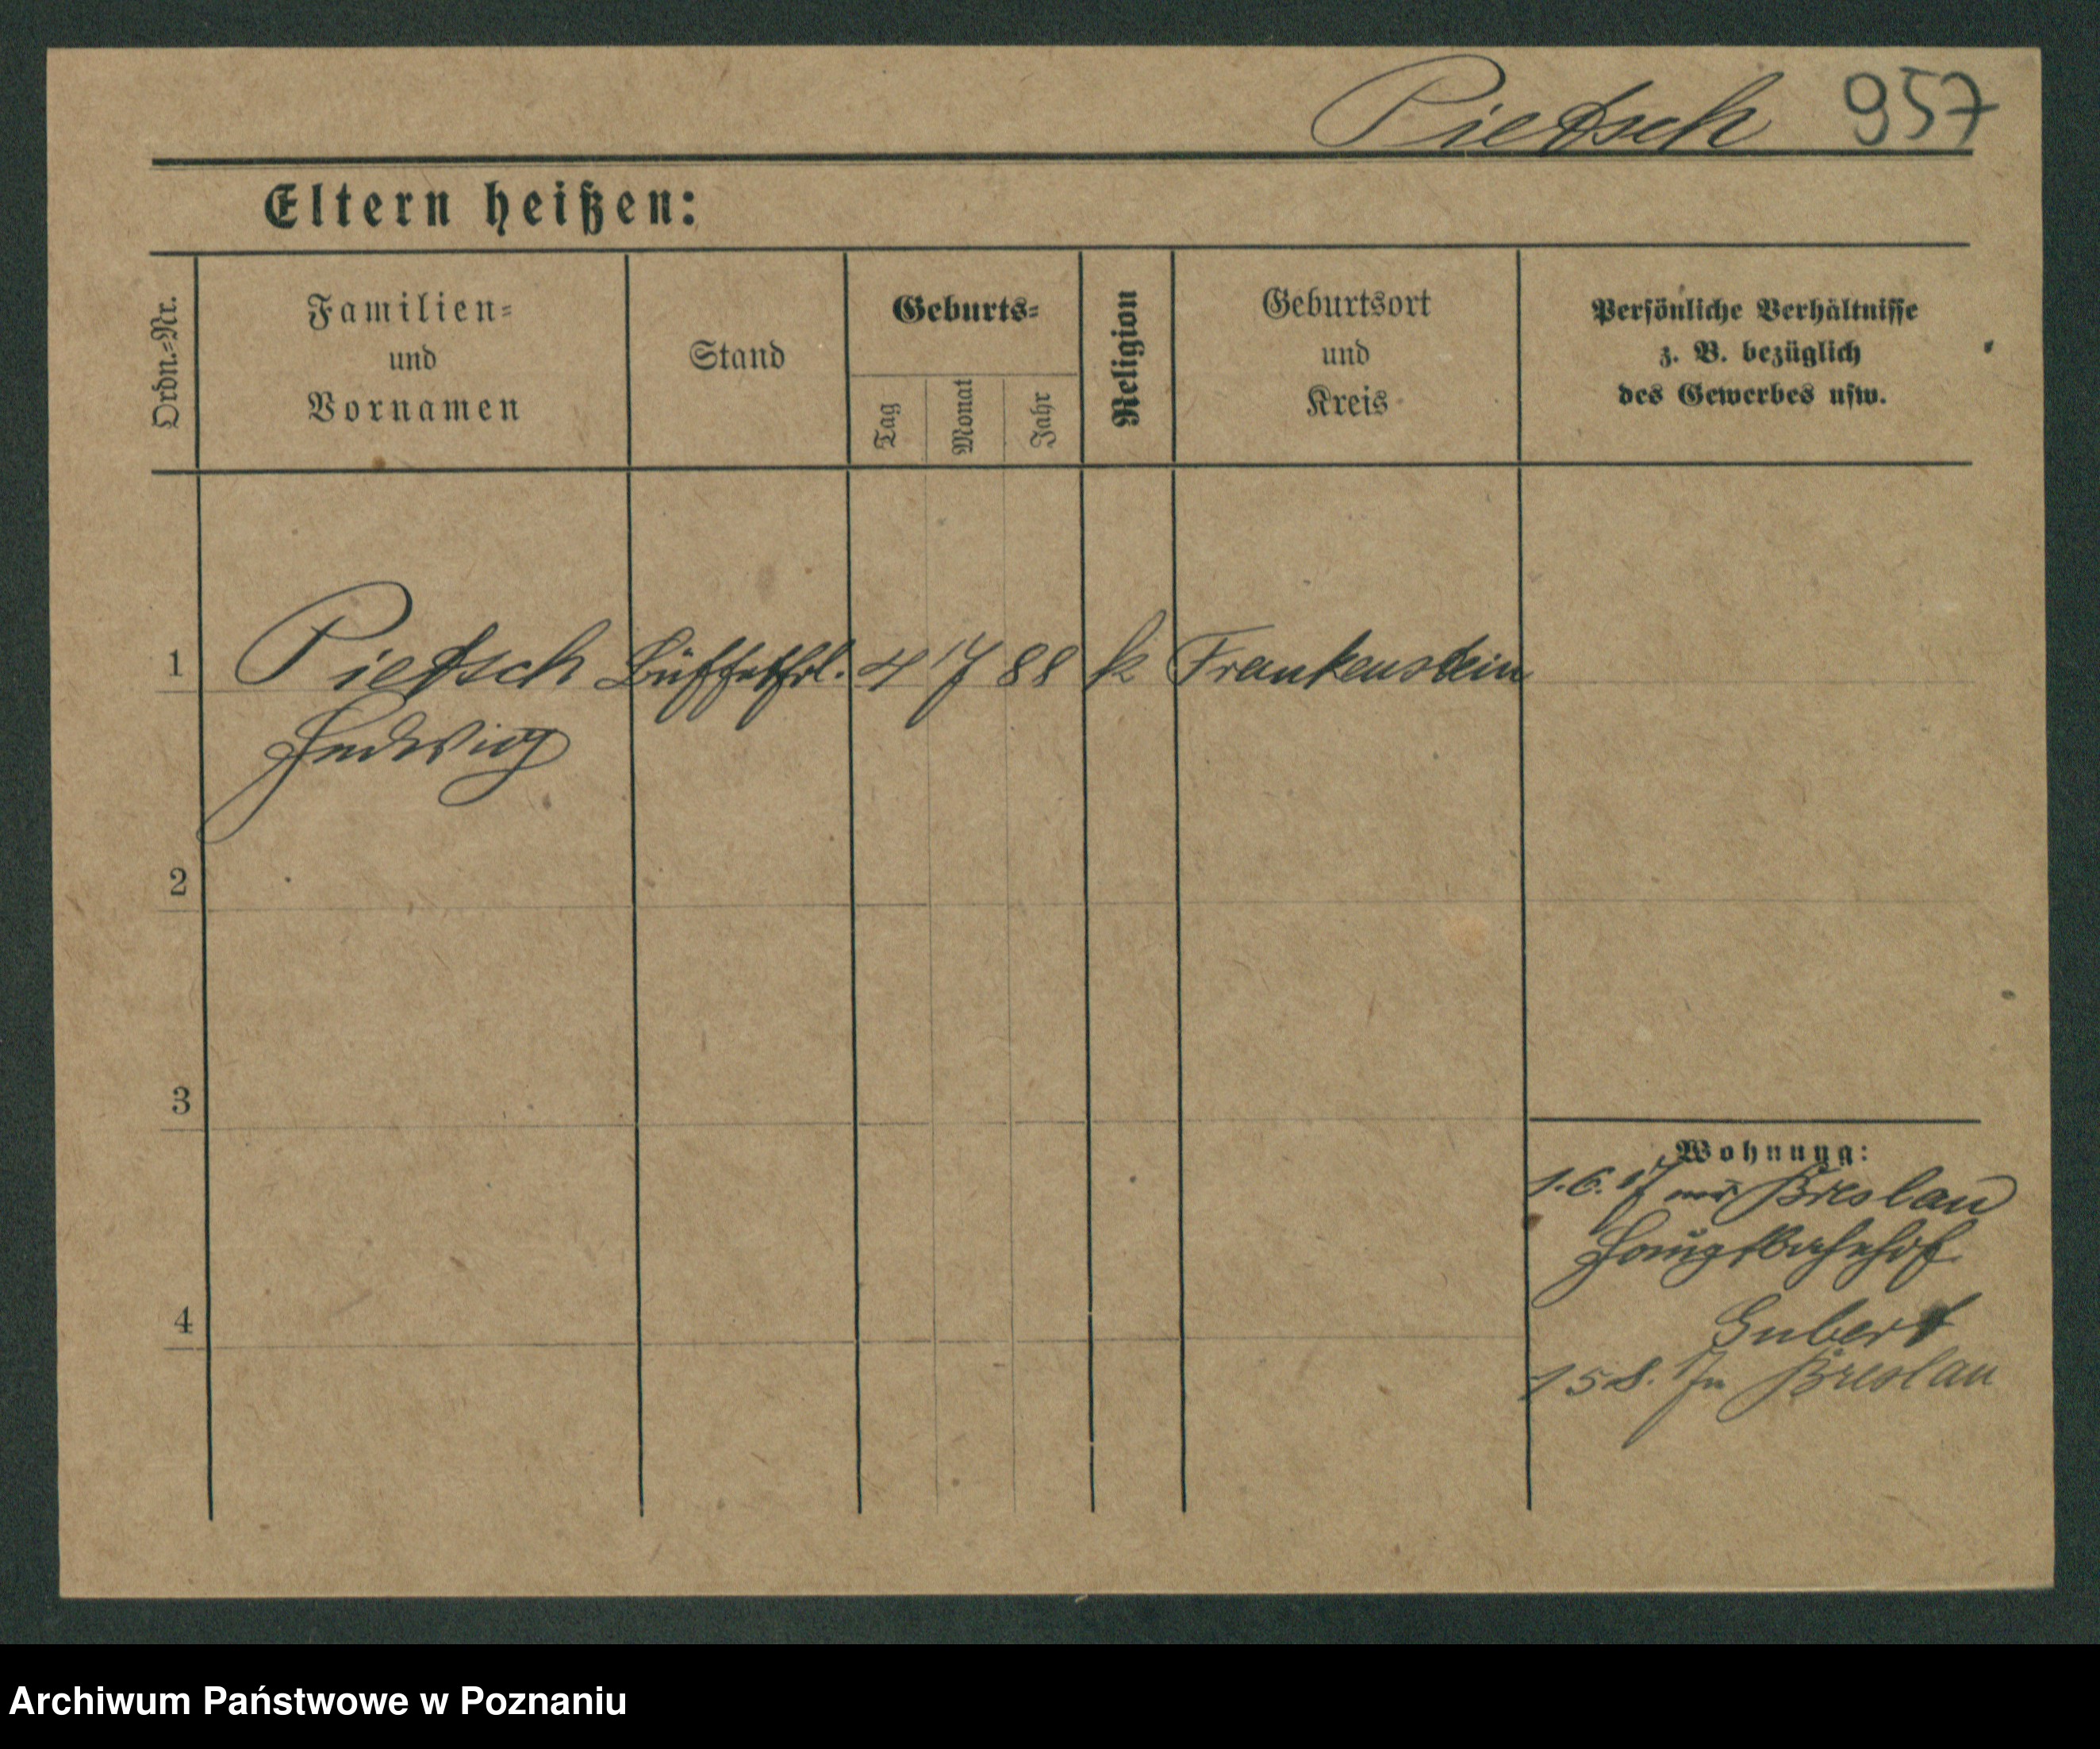 Pietsch 957
Eltern heißen:
Ordn.=Nr.
Familien=
und
Vornamen
Stand
Geburts=
Tag
Monat
Jahr
Religion
Geburtsort
und
Kreis
Persönliche Verhältnisse
z. B. bezüglich
des Gewerbes usw.
1 Pietsch Büffetfrl. 4 7 88 k Frankenstein
Hedwig
2
3
4
Wohnung:
1.6.17 Breslau
Hauptbahnhof
15 8. 17 Breslau
Archiwum Państwowe w Poznaniu